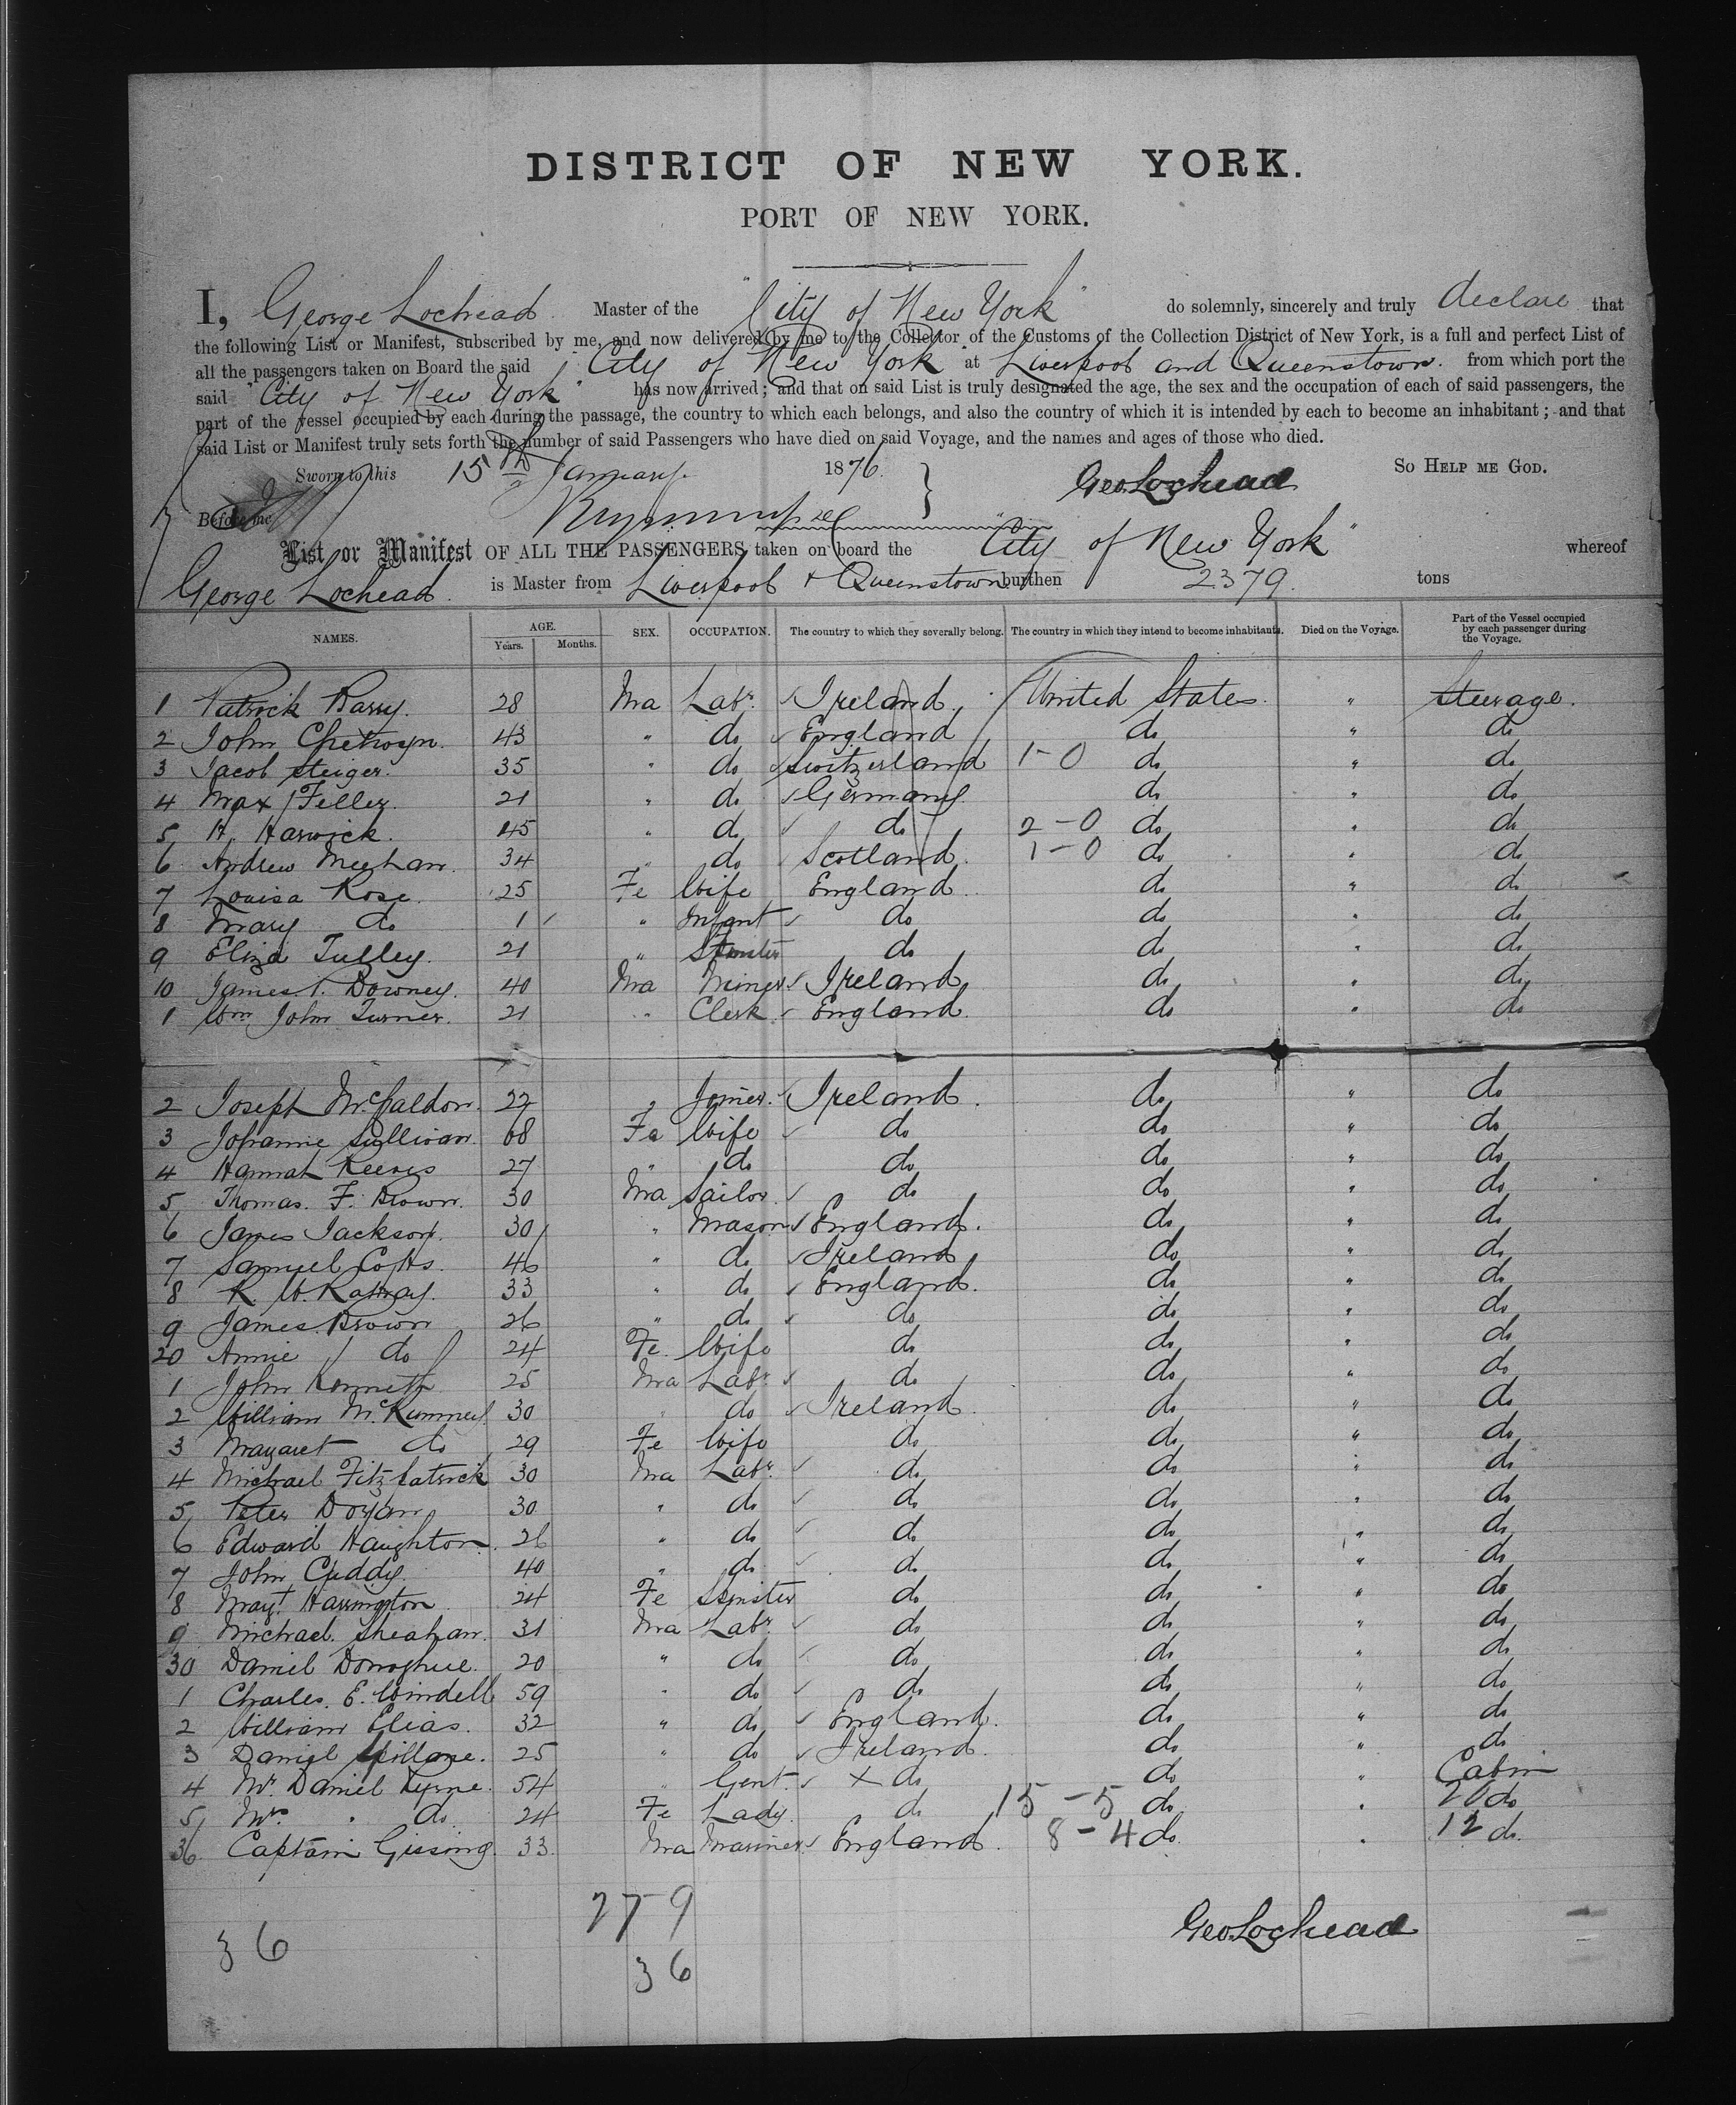 DISTRICT OF NEW YORK.
PORT OF NEW YORK.
I, George Lochead Master of the "City of New York" do solemnly, sincerely and truly declare that
the following List or Manifest, subscribed by me, and now delivered by me to the Collector of the Customs of the Collection District of New York, is a full and perfect List of
all the passengers taken on Board the said "City of New York" at Liverpool and Queenstown. from which port the
said "City of New York" has now arrived; and that on said List is truly designated the age, the sex and the occupation of each of said passengers, the
part of the vessel occupied by each during the passage, the country to which each belongs, and also the country of which it is intended by each to become an inhabitant; and that
said List or Manifest truly sets forth the number of said Passengers who have died on said Voyage, and the names and ages of those who died.
Sworn to this 15th January. 1876. Geo Lochead SO HELP ME GOD.
Before me
List or Manifest OF ALL THE PASSENGERS taken on board the "City of New York" whereof
George Lochead. is Master from Liverpool + Queenstown burthen 2379. tons
NAMES. AGE. Years. Months. SEX. OCCUPATION. The country to which they severally belong. The country in which they intend to become inhabitants. Died on the Voyage. Part of the Vessel occupied by each passenger during the Voyage.
1 Patrick Barry. 28 Ma Labr. Ireland. United States. " Steerage.
2 John Chetwyn. 43 " do England do " do
3 Jacob Steiger. 35 " do Switzerland 1-0 do " do
4 Max Feller. 21 " do Germany do " do
5 H. Harwick. 45 " do do 2-0 do " do
6 Andrew Meehan. 34 " do Scotland. 1-0 do " do
7 Louisa Rose. 25 Fe Wife England do " do
8 Mary do 1 " Infant do do " do
9 Eliza Tulley. 21 " do do " do
10 James Downey. 40 Ma Miner Ireland do " do
1 Wm John Turner. 21 " Clerk England do " do
2 Joseph 22 " Joiner. Ireland. do " do
3 Johannie Sullivan. 68 Fe Wife do do " do
4 Hannah Reeves 27 " do do do " do
5 Thomas. F. Brown. 30 Ma Sailor. do do " do
6 James Jackson. 30 " Mason England. do " do
7 Samuel 46 " do Ireland do " do
8 R. W. 33 " do England. do " do
9 James Brown 26 " do do do " do
20 Annie do 24 Fe. Wife do do " do
1 John 25 Ma Labr. do do " do
2 William McKummey 30 " do Ireland do " do
3 Margaret do 29 Fe Wife do do " do
4 Michael Fitzpatrick 30 Ma Labr. do do " do
5 Peter 30 " do do do " do
6 Edward Haughton. 26 " do do do " do
7 John Cuddy. 40 " do do do " do
8 Magt. Harrington 24 Fe do do " do
9 Michael. Sheahan. 31 Ma Labr. do do " do
30 Daniel Donoghue. 20 " do do do " do
1 Charles. E. Windell 59 " do do do " do
2 William Elias. 32 " do England. do " do
3 Daniel Spillane. 25 " do Ireland. do " do
4 Mr. Daniel Kyrne. 54 " Gent. X do do " Cabin
5 Mrs. " do 24 Fe Lady. do 15-5 do " 20 do
36. Captain Gissing. 33. Ma Mariner England. 8-4 do. " 12 do.
27-9
36
36
Geo Lochead